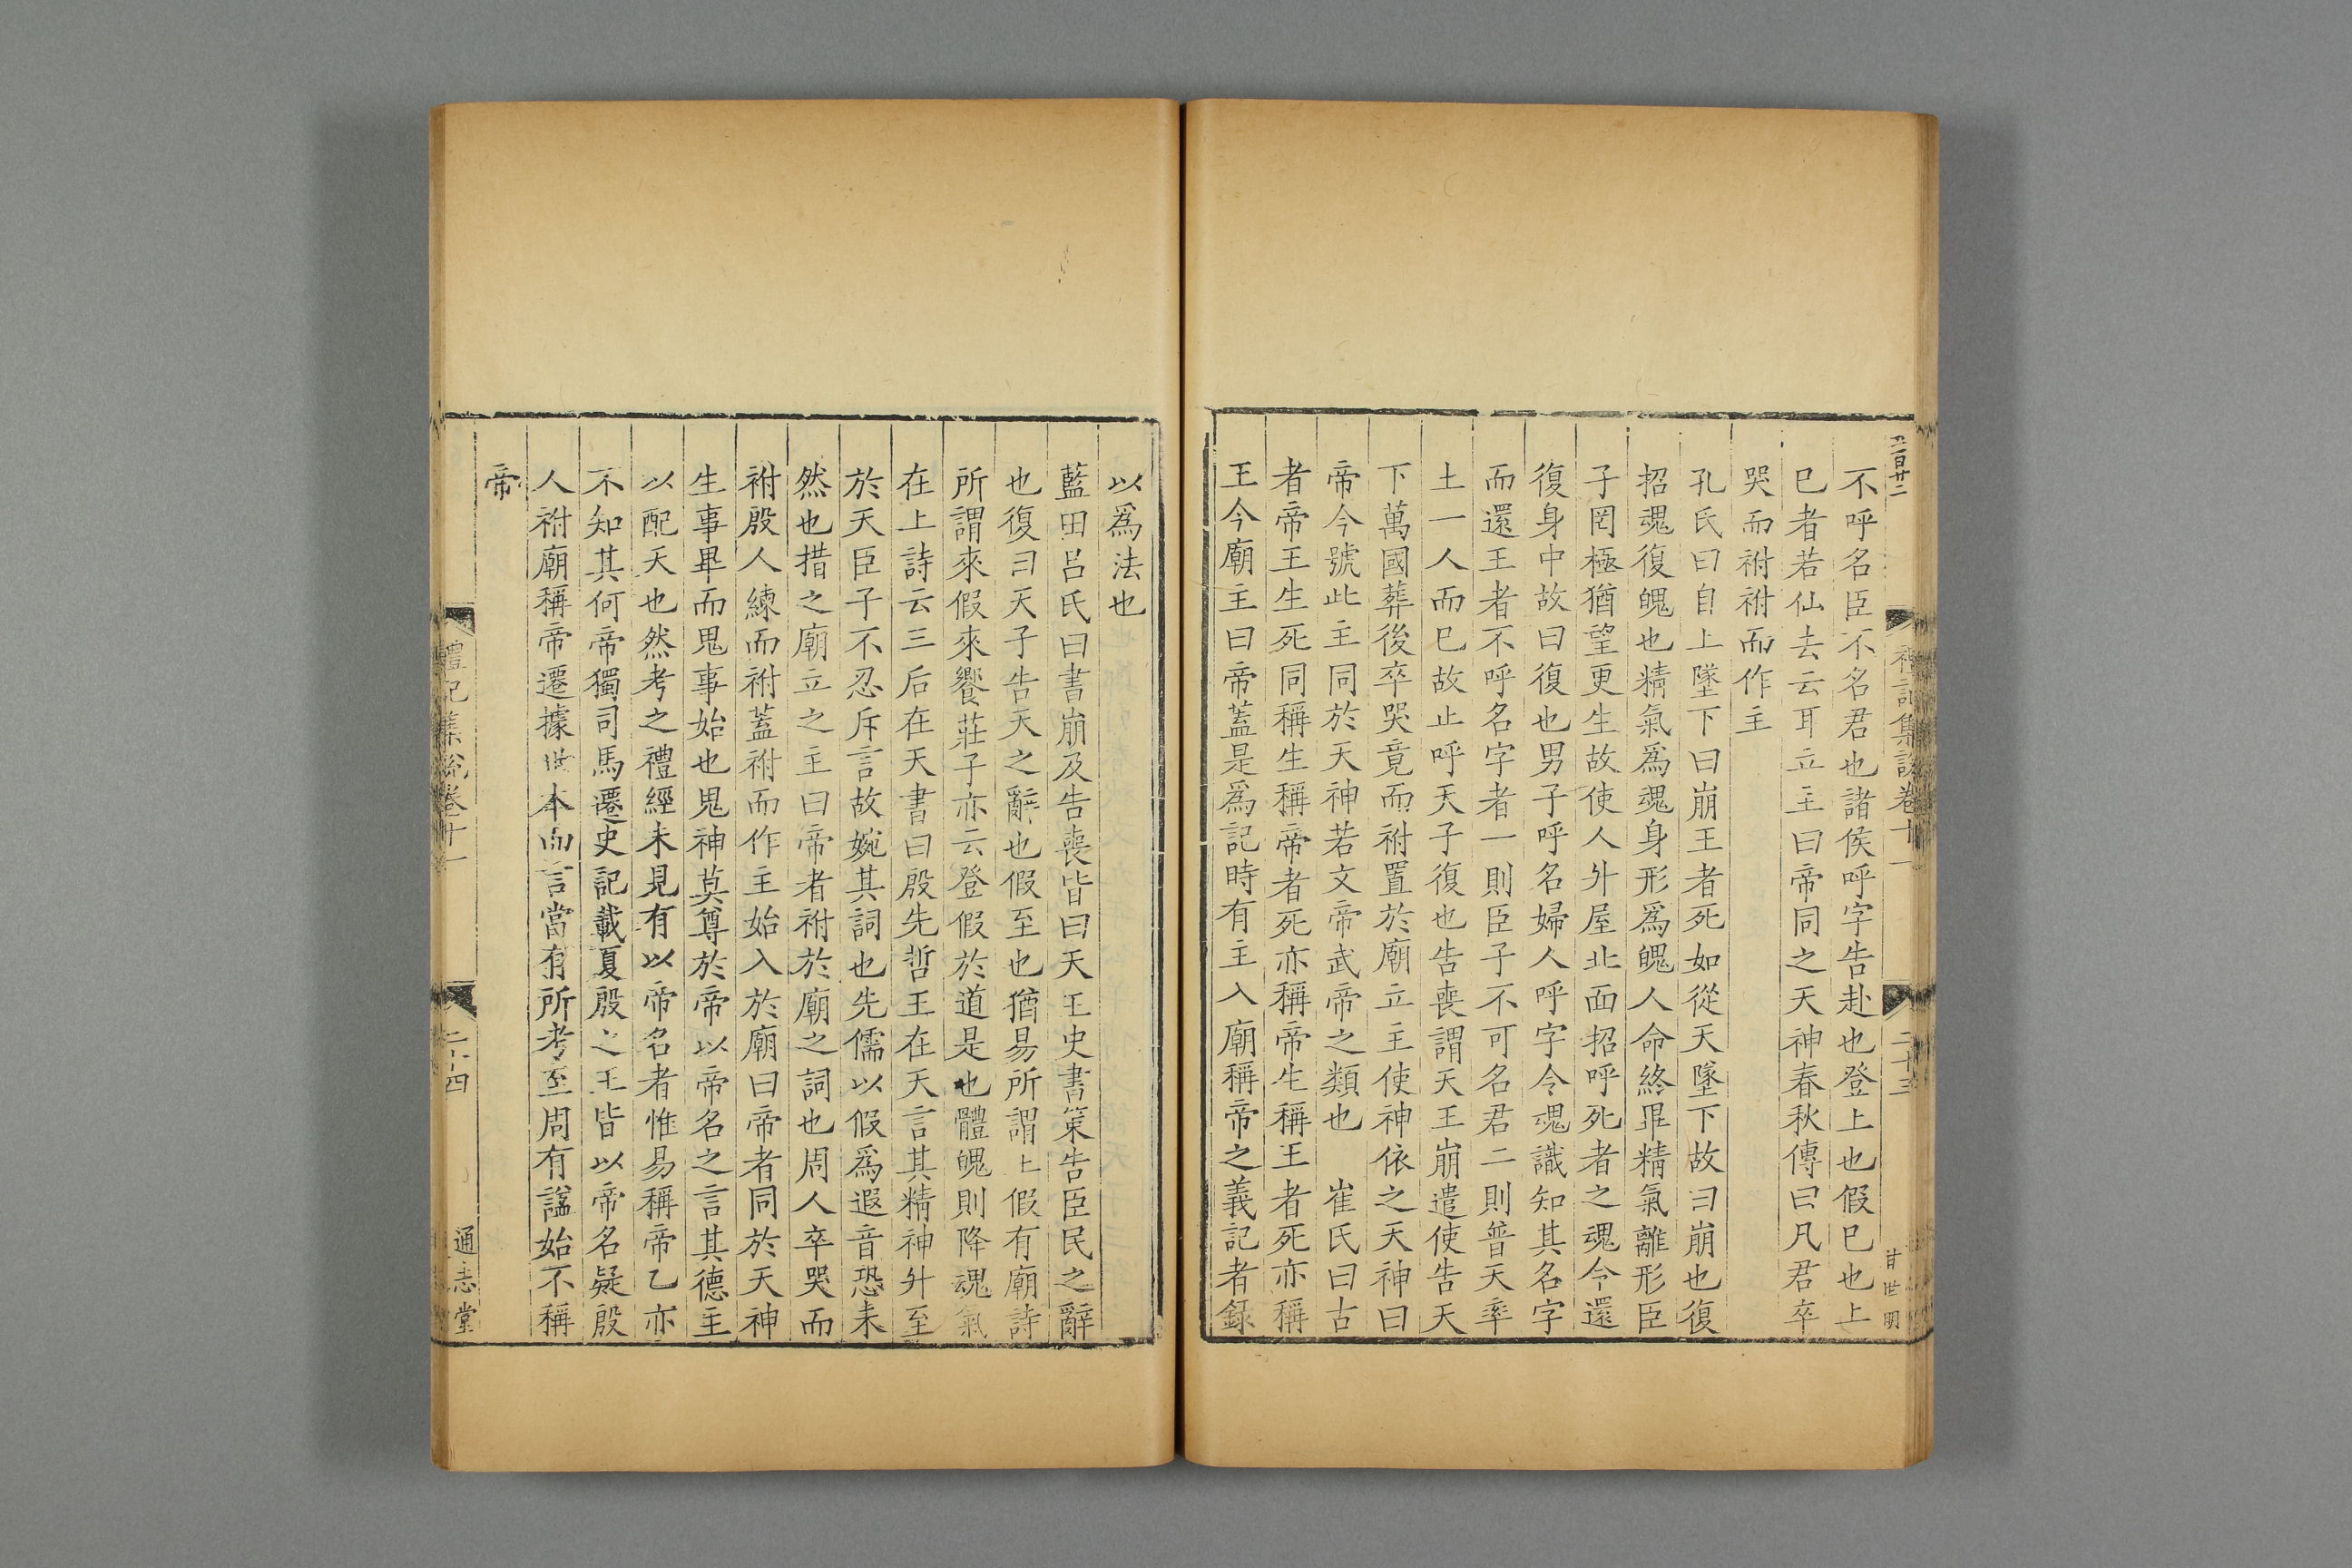 不呼名臣不名君也諸侯呼字告赴也登上也假巳也上
巳者若仙去云耳立主曰帝同之天神春秋傳曰凡君卒
哭而祔祔而作主
孔氏曰自上墜下曰崩王者死如從天墜下故曰崩也復
招魂復魄也精氣爲魂身形爲魄人命終畢精氣離形臣
子罔極猶望更生故使人升屋北面招呼死者之魂令還
復身中故曰復也男子呼名婦人呼字令魂識知其名字
而還王者不呼名字者一則臣子不可名君二則普天率
土一人而巳故止呼天子復也告喪謂天王崩遣使告天
下萬國葬後卒哭竟而祔置於廟立主使神依之天神曰
帝今號此主同於天神若文帝武帝之類也　崔氏曰古
者帝王生死同稱生稱帝者死亦稱帝生稱王者死亦稱
王今廟主曰帝蓋是爲記時有主入廟稱帝之義記者錄
以爲法也
藍田呂氏曰書崩及告喪皆曰天王史書策告臣民之辭
也復曰天子告天之辭也假至也猶易所謂上假有廟詩
所謂來假來饗莊子亦云登假於道是也體魄則降魂氣
在上詩云三后在天書曰殷先哲王在天言其精神升至
於天臣子不忍斥言故婉其詞也先儒以假爲遐音恐未
然也措之廟立之主曰帝者祔於廟之詞也周人卒哭而
祔殷人練而祔蓋祔而作主始入於廟曰帝者同於天神
生事畢而鬼事始也鬼神莫尊於帝以帝名之言其德主
以配天也然考之禮經未見有以帝名者惟易稱帝乙亦
不知其何帝獨司馬遷史記載夏殷之王皆以帝名疑殷
人祔廟稱帝遷據世本而言當有所考至周有諡始不稱
帝
禮記集說卷十一
二十三
甘世明
禮記集說卷十一
二十四
通志堂